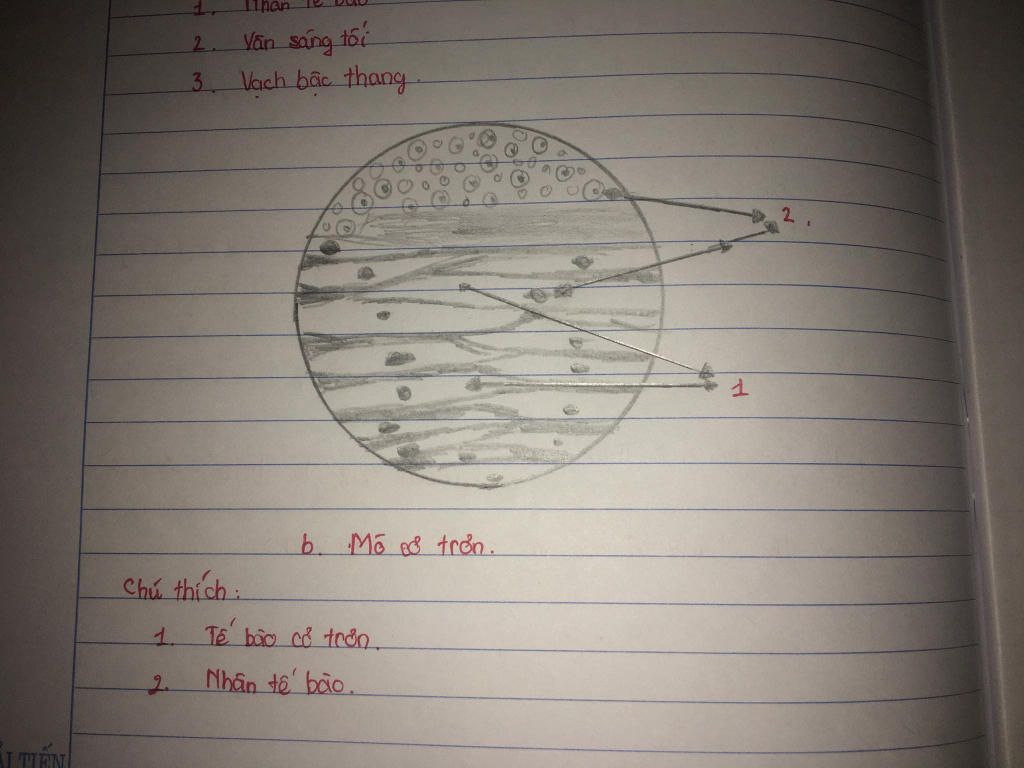 1. Nhân tế bào
2. Vân sáng tối
3. Vạch bậc thang.
2.
1
b. Mô cơ trơn.
Chú thích:
1. Tế bào cơ trơn.
2. Nhân tế bào.
TIẾN